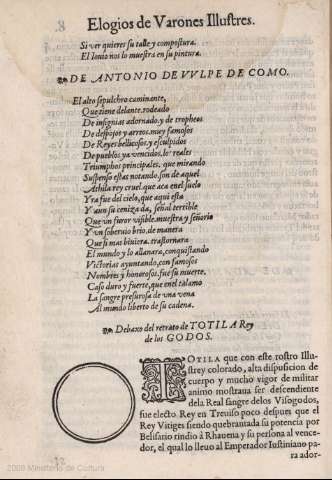 Elogios de Varones Illustres.
Si ver quieres su talle y compostura.
El Iouio nos lo muestra en su pintura.
DE ANTONIO DE VVLPE DE COMO.
El alto sepulchro caminante,
Que tiene delante, rodeado
De insignias adornado, y de tropheos
De despojos y arreos, muy famosos
De Reyes bellicosos, y esculpidos
De pueblos ya vencidos, lo reales
Triumphos principales, que mirando
Suspenso estas notando, son de aquel
Athila rey cruel, que aca en el suelo
Yra fue del cielo, que aqui esta
Y aun su ceniza da, señal terrible
Que un furor visible, muestra, y señorio
Y un soberuio brio, de manera
Que si mas biuiera, trastornara
El mundo y lo allanara, conquistando
Victorias ayuntando, con famosos
Nombres y honorosos, fue su muerte.
Caso duro y fuerte, que en el talamo
La sangre presurosa de una vena
Al mundo liberto de su cadena.
Debaxo del retrato de TOTILA Rey
de los GODOS.
TOTILA que con este rostro Illu-
strey colorado, alta disposicion de
cuerpo y mucho vigor de militar
animo mostraua ser descendiente
dela Real sangre delos Visogodos,
fue electo Rey en Treuiso poco despues que el
Rey Vitiges siendo quebrantada su potencia por
Belisario rindio à Rhauena y su persona al vence-
dor, el qual lo lleuo al Emperador Iustiniano pa
ra ador-
2009 Ministerio de Cultura